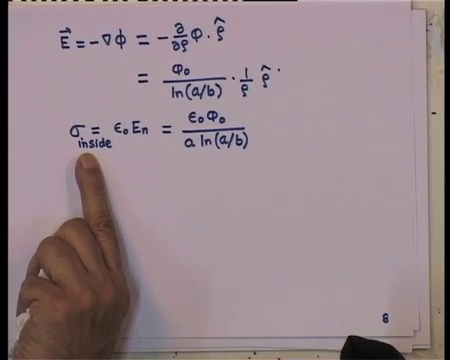 E⃗ = −∇ϕ = − ∂/∂ρ Φ · ρ̂
= Φ₀/ln(a/b) · 1/ρ ρ̂
σ inside = ϵ₀ Eₙ = ϵ₀ Φ₀ / a ln(a/b)
8